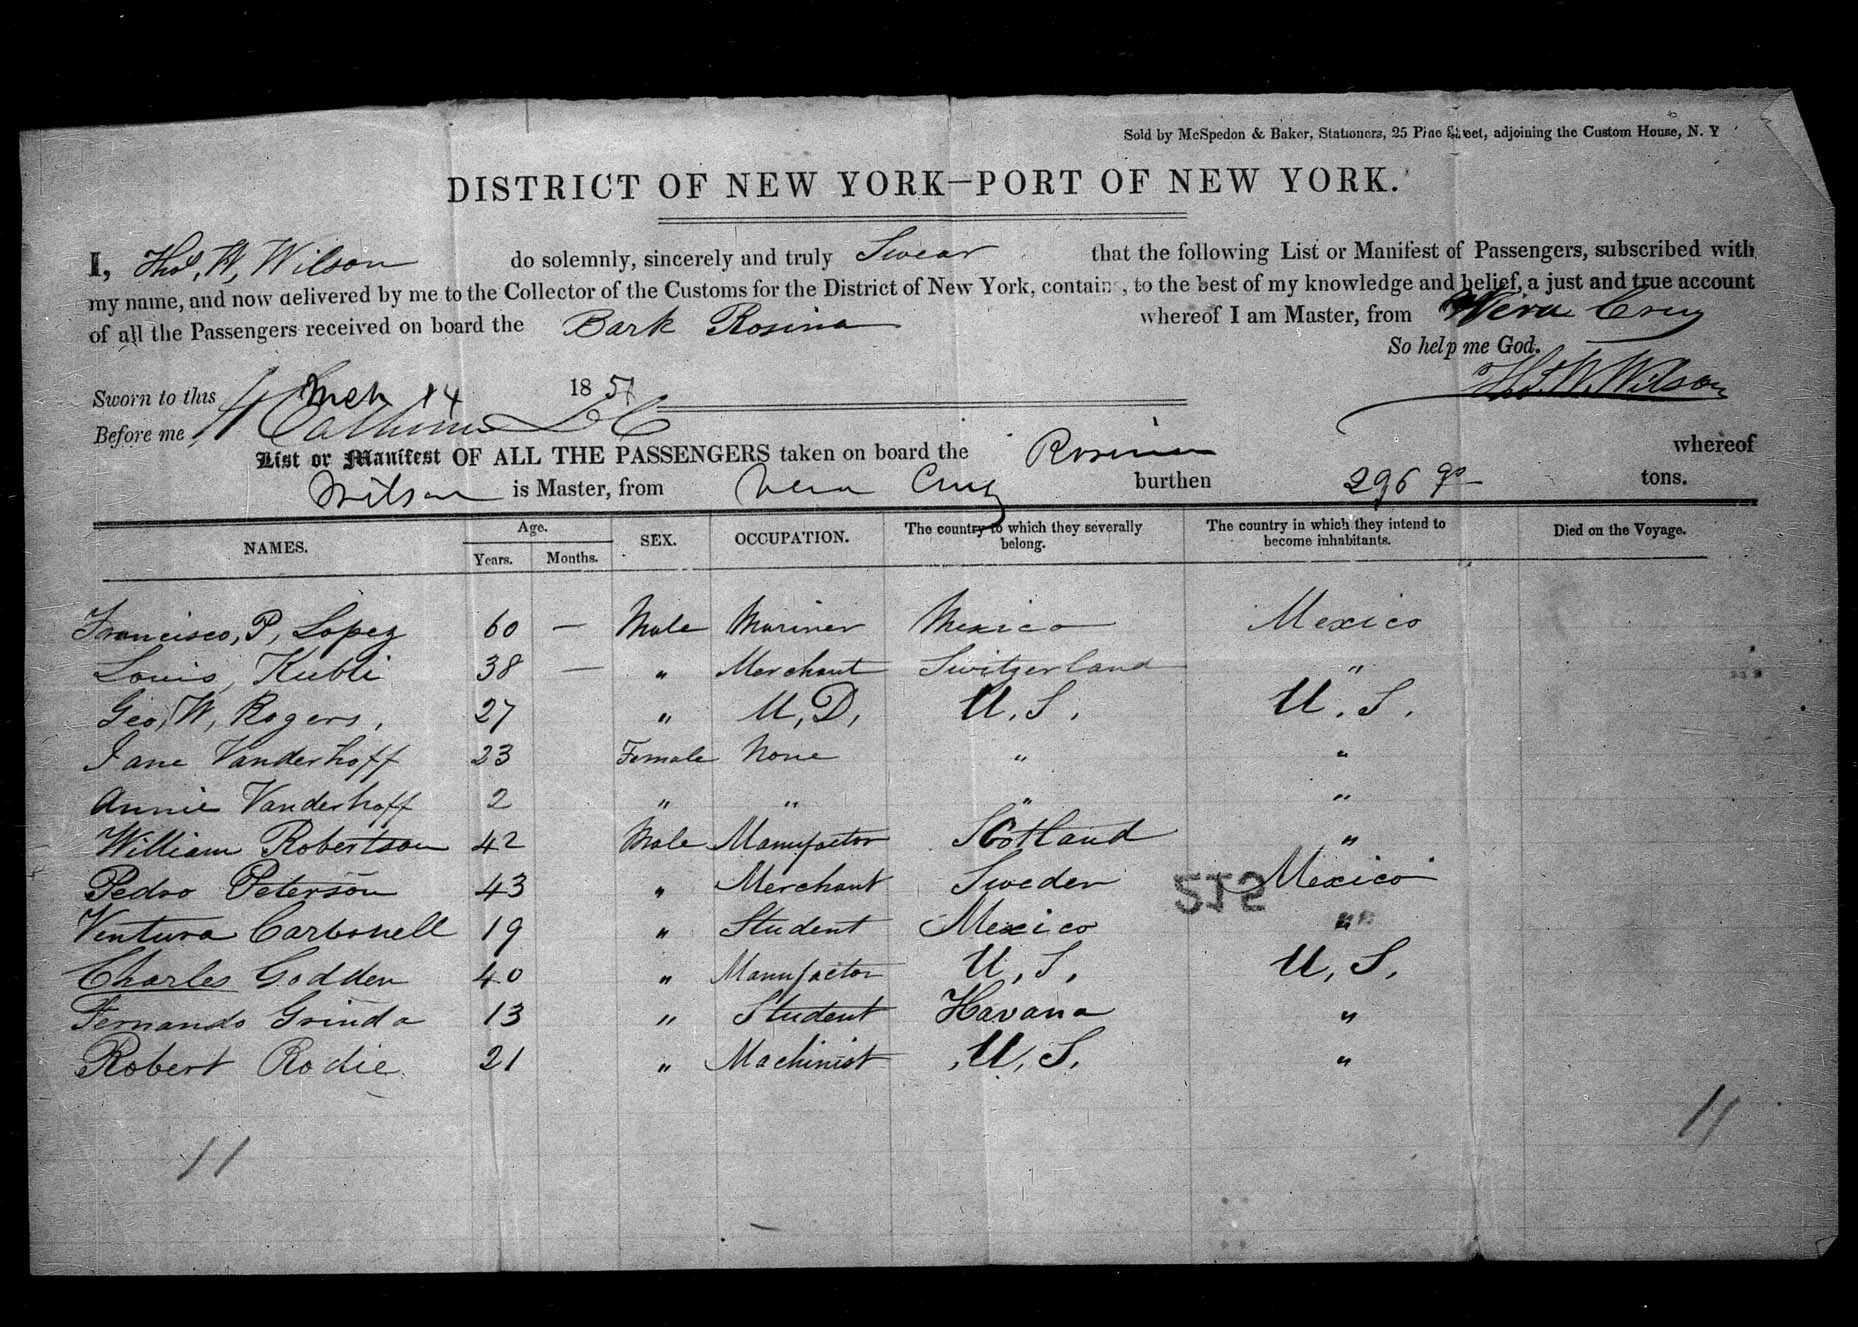 Sold by McSpedon & Baker, Stationers, 25 Pine Street, adjoining the Custom House, N. Y
DISTRICT OF NEW YORK—PORT OF NEW YORK.
I, Thos, W, Wilson do solemnly, sincerely and truly Swear that the following List or Manifest of Passengers, subscribed with
my name, and now delivered by me to the Collector of the Customs for the District of New York, contains, to the best of my knowledge and belief, a just and true account
of all the Passengers received on board the Bark Rosina whereof I am Master, from Vera Cruz
So help me God.
Sworn to this Mch 14 1851 Thos. W. Wilson
Before me
List or Manifest OF ALL THE PASSENGERS taken on board the Rosina whereof
Wilson is Master, from Vera Cruz burthen 296 tons.
NAMES. Age. Years. Months. SEX. OCCUPATION. The country to which they severally belong. The country in which they intend to become inhabitants. Died on the Voyage.
Francisco, P, Lopez 60 — Male Mariner Mexico Mexico
Louis, Kubli 38 — " Merchant Switzerland "
Geo, W, Rogers, 27 " M, D, U. S. U. S.
Jane Vanderhoff 23 Female None " "
Annie Vanderhoff 2 " " " "
William Robertson 42 Male Manufactor Scotland "
Pedro Peterson 43 " Merchant Sweden Mexico
Ventura Carbonell 19 " Student Mexico "
Charles Godden 40 " Manufactor U, S, U, S,
Fernando Grinda 13 " Student Havana "
Robert Rodie 21 " Machinist U, S. "
11 11